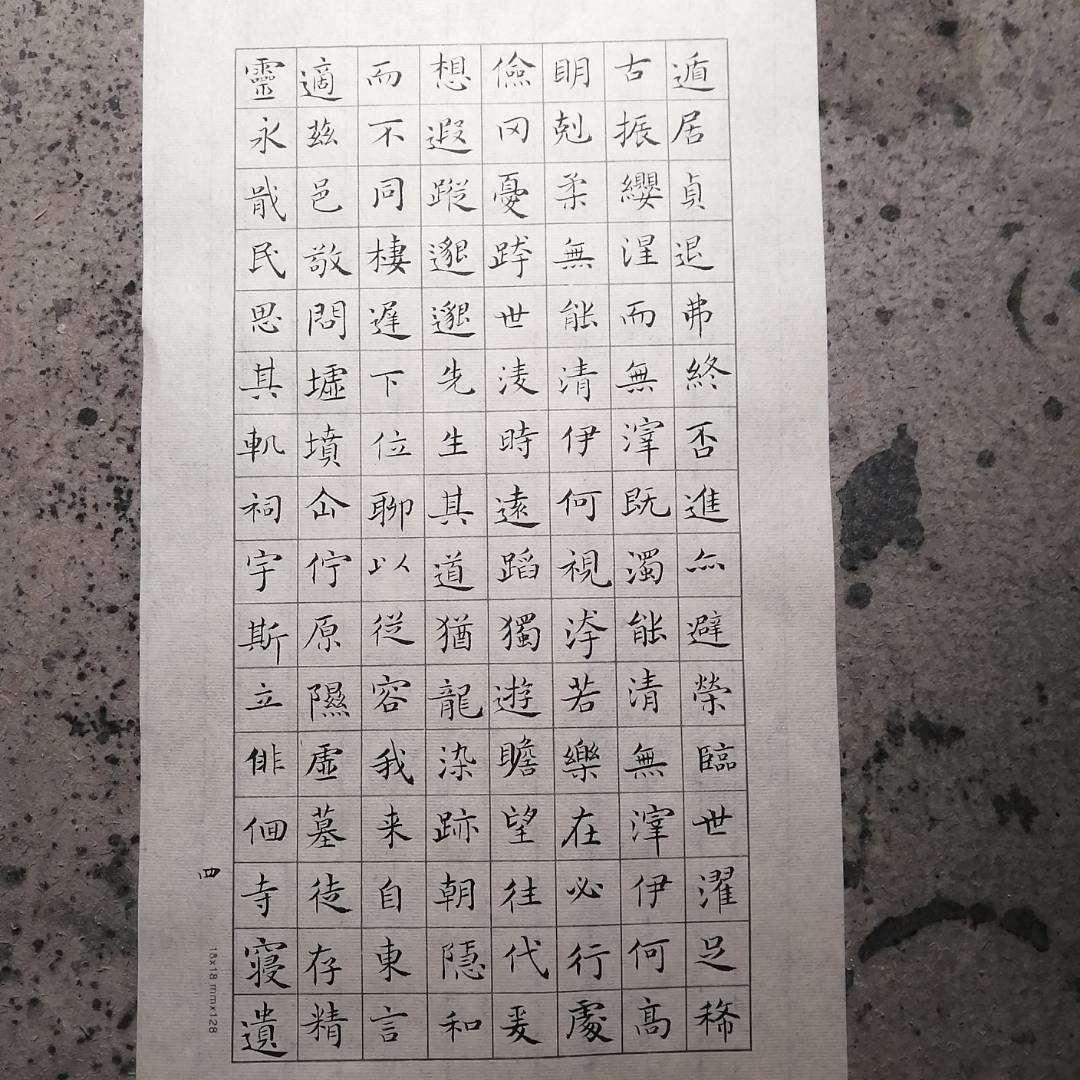 遁居貞退弗終否進亦避榮臨世濯足稀
古振纓涅而無滓既濁能清無滓伊何高
眀剋柔無能清伊何視洿若樂在必行處
儉罔憂跨世淩時遠蹈獨遊瞻望往代爰
想遐蹤邈邈先生其道猶龍染跡朝隱和
而不同棲遲下位聊以從容我来自東言
適茲邑敬問墟墳企佇原隰虛墓徒存精
靈永戢民思其軌祠宇斯立俳佪寺寢遺
四
18x18 mmx128